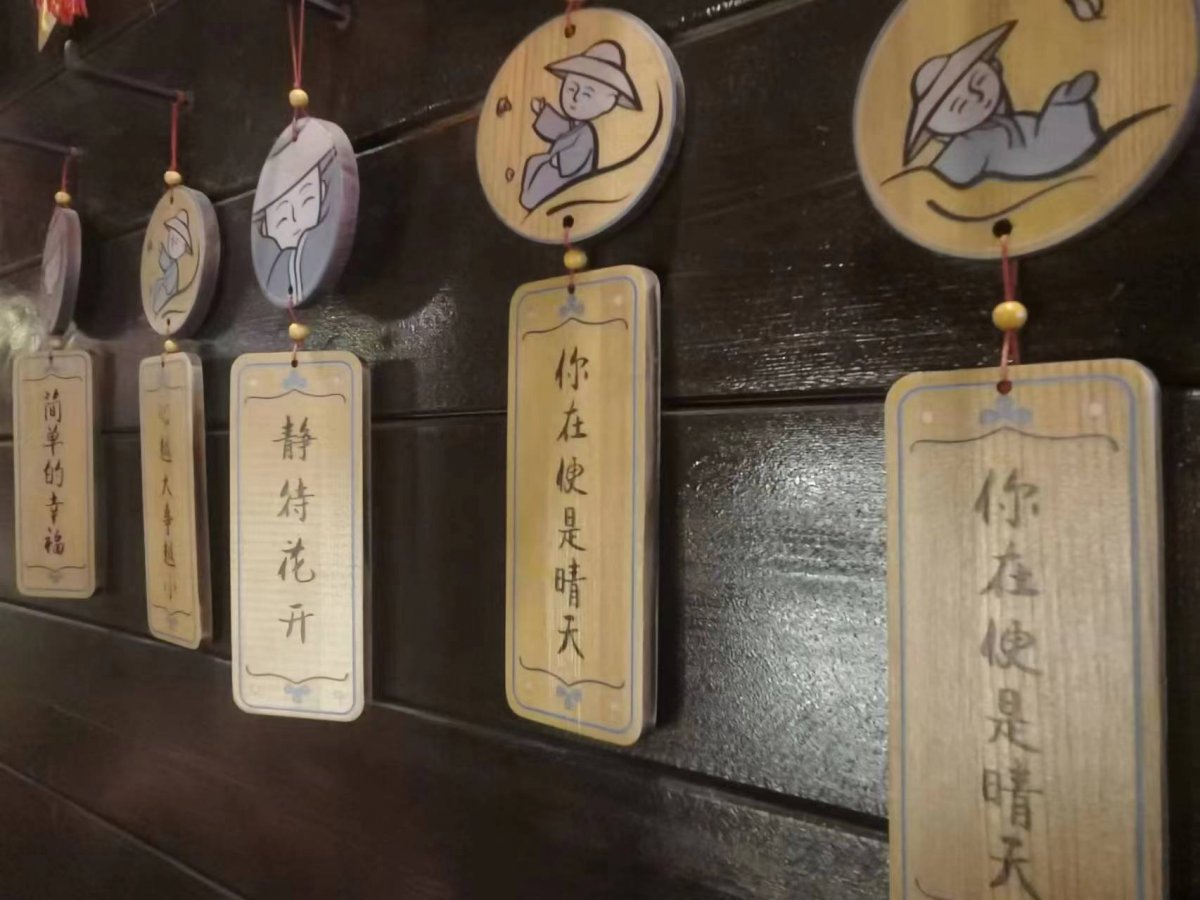 简单的幸福
心越大事越小
静待花开
你在便是晴天
你在便是晴天